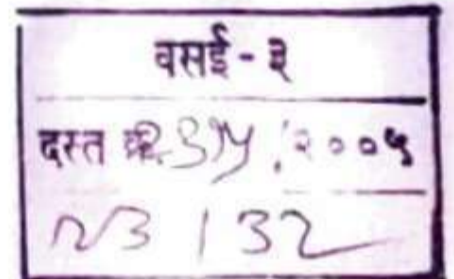 वसई - ३
दस्त क्र. /२००५
23 / 32